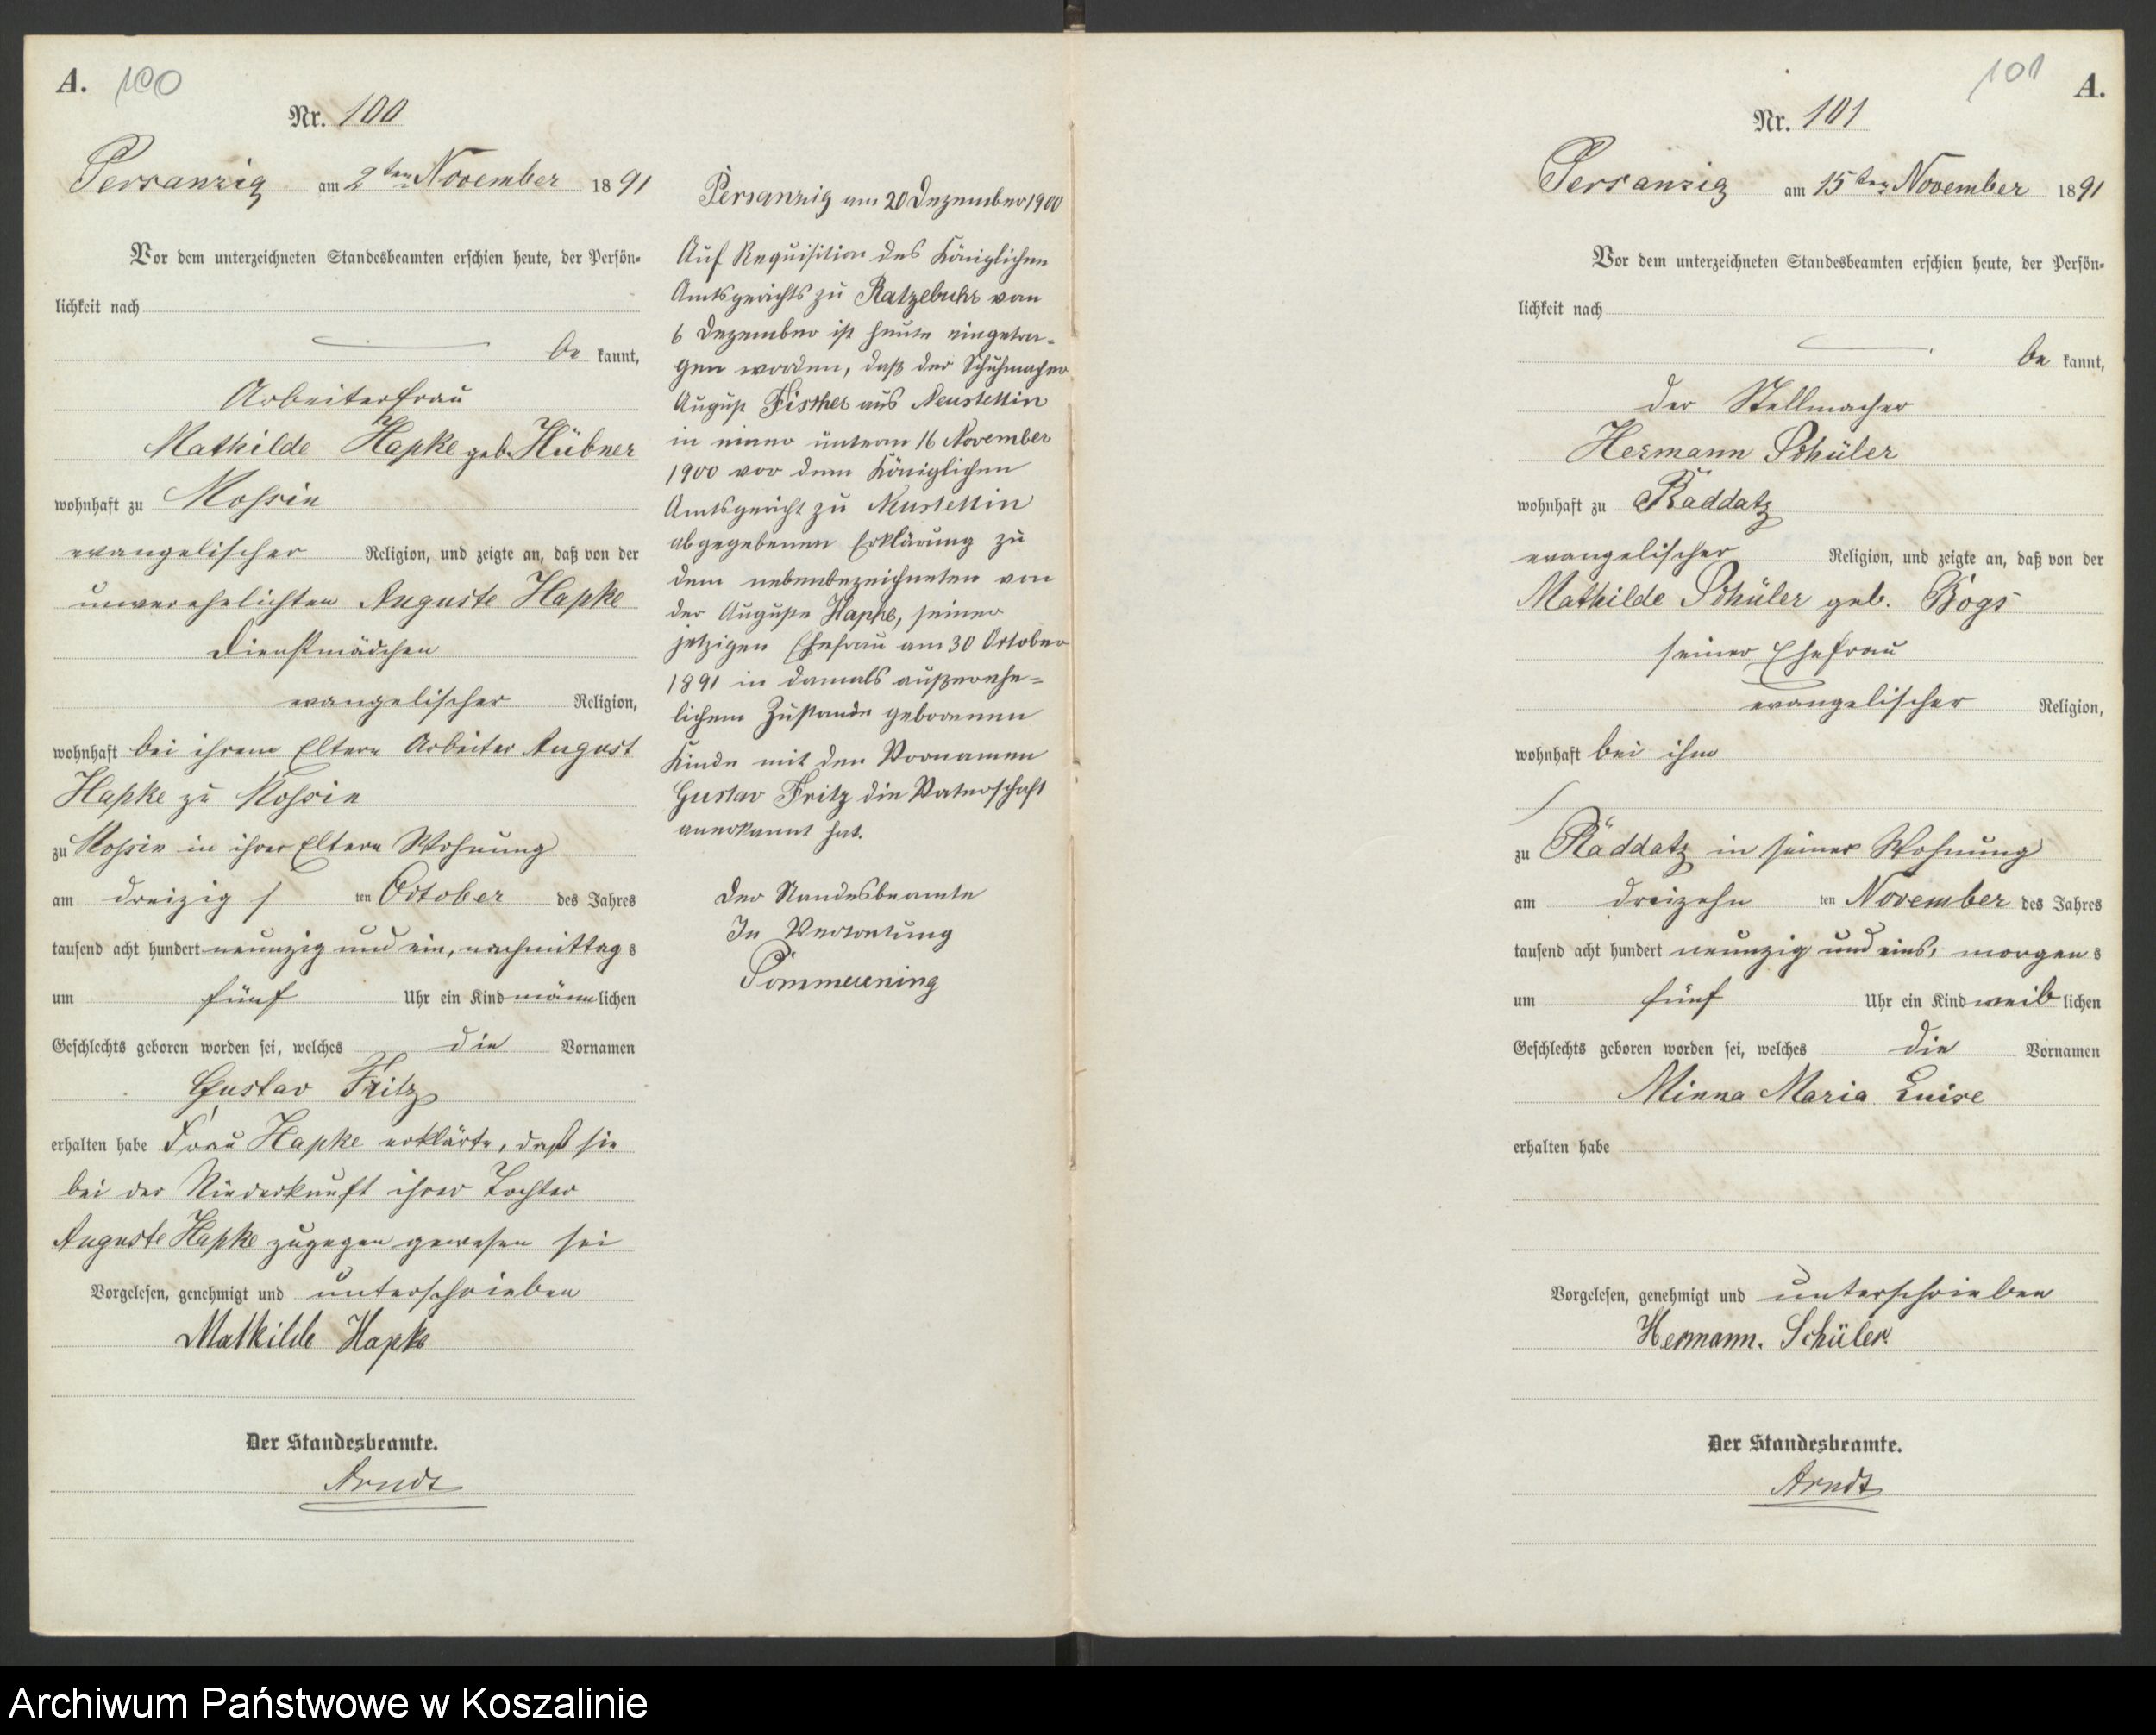 A. 100
Nr. 100
Persanzig am 2ten November 1891
Vor dem unterzeichneten Standesbeamten erschien heute, der Persön-
lichkeit nach
be kannt,
Arbeiterfrau
Mathilde Hapke geb. Hübner
wohnhaft zu Mossin
evangelischer Religion, und zeigte an, daß von der
unverehelichten Auguste Hapke
Dienstmädchen
evangelischer Religion,
wohnhaft bei ihren Eltern Arbeiter August
Hapke zu Mossin
zu Mossin in ihrer Eltern Wohnung
am dreizig ten October des Jahres
tausend acht hundert neunzig und ein, nachmittag s
um fünf Uhr ein Kind männlichen
Geschlechts geboren worden sei, welches die Vornamen
Gustav Fritz
erhalten habe Frau Hapke erklärte, daß sie
bei der Niederkunft ihrer Tochter
Auguste Hapke zugegen gewesen sei
Vorgelesen, genehmigt und unterschrieben
Mathilde Hapke
Der Standesbeamte.
Arndt
Persanzig am 20 Dezember 1900
Auf Requisition des Königlichen
Amtsgerichts zu Ratzebuhr vom
6 Dezember ist heute eingetra-
gen worden, daß der Schuhmacher
August Fischer aus Neustettin
in einer unterm 16 November
1900 vor dem Königlichen
Amtsgericht zu Neustettin
abgegebenen Erklärung zu
dem nebenbezeichneten von
der Auguste Hapke, seiner
jetzigen Ehefrau am 30 October
1891 in damals außerehe-
lichem Zustande geborenen
Kinde mit den Vornamen
Gustav Fritz die Vaterschaft
anerkannt hat.
Der Standesbeamte
In Vertretung
Pommerening
101 A.
Nr. 101
Persanzig am 15ten November 1891
Vor dem unterzeichneten Standesbeamten erschien heute, der Persön-
lichkeit nach
be kannt,
der Stellmacher
Hermann Schüler
wohnhaft zu Raddatz
evangelischer Religion, und zeigte an, daß von der
Mathilde Schüler geb. Bogs
seiner Ehefrau
evangelischer Religion,
wohnhaft bei ihm
zu Raddatz in seiner Wohnung
am dreizehn ten November des Jahres
tausend acht hundert neunzig und eins, morgen s
um fünf Uhr ein Kind weib lichen
Geschlechts geboren worden sei, welches die Vornamen
Minna Maria Luise
erhalten habe
Vorgelesen, genehmigt und unterschrieben
Hermann. Schüler.
Der Standesbeamte.
Arndt
Archiwum Państwowe w Koszalinie